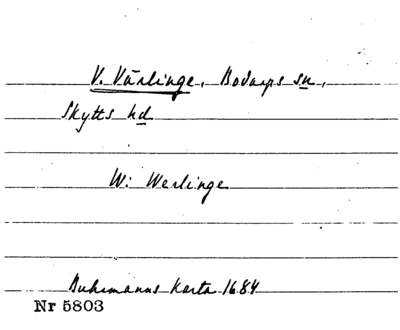 V. Värlinge, Bodarps sn,
Skytts hd
W: Werlinge
Buhrmanns karta 1684
Nr 5803